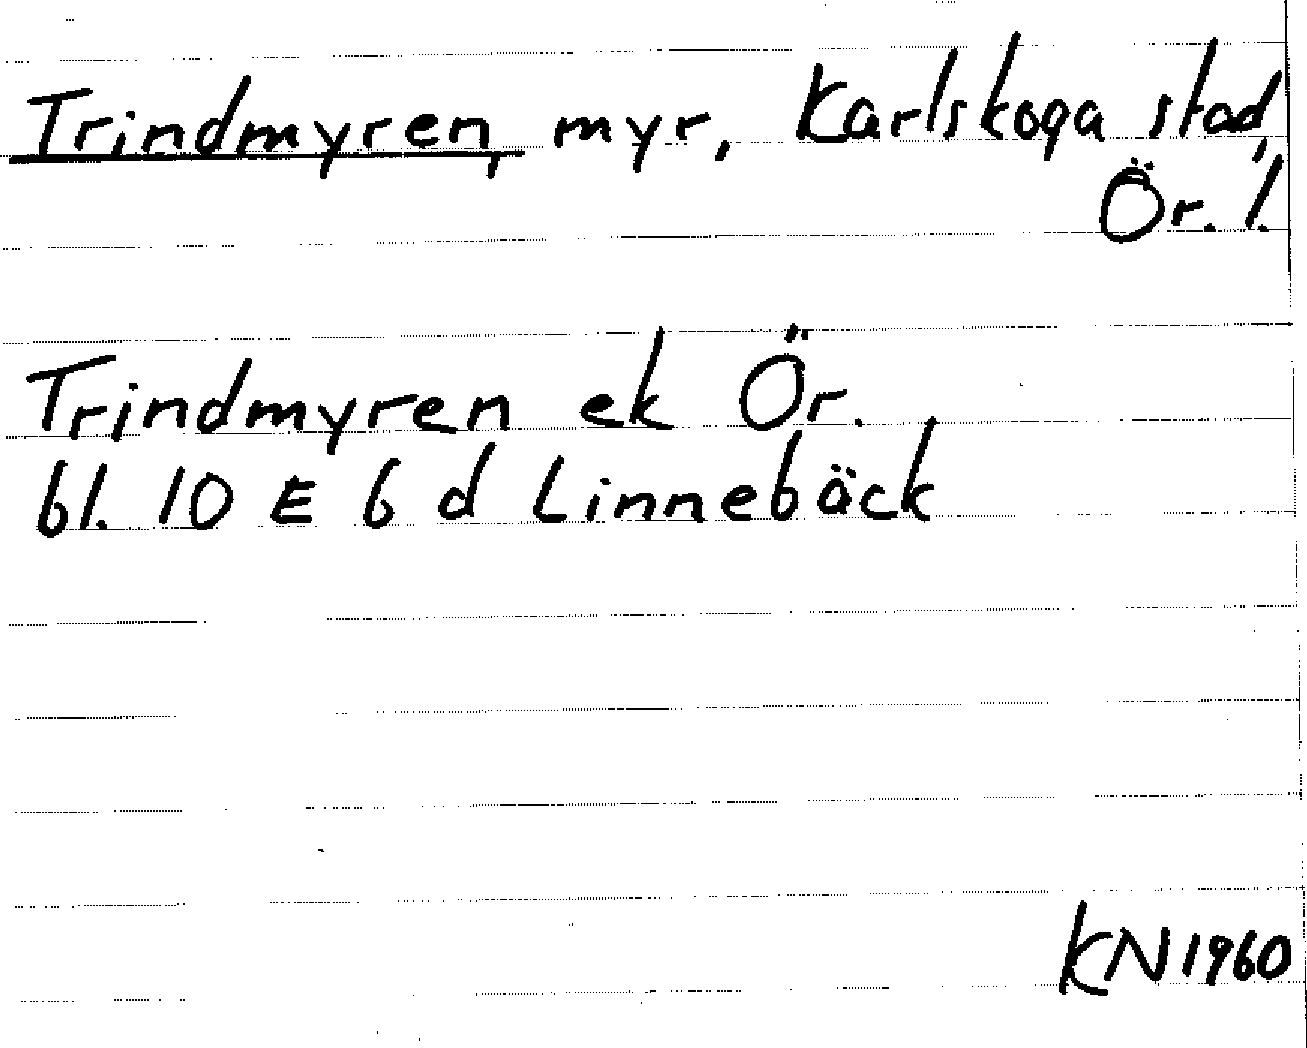 Trindmyren, myr, Karlskoga stad,
Ör. l.
Trindmyren ek Ör.
bl. 10 E 6 d Linnebäck
KN 1960